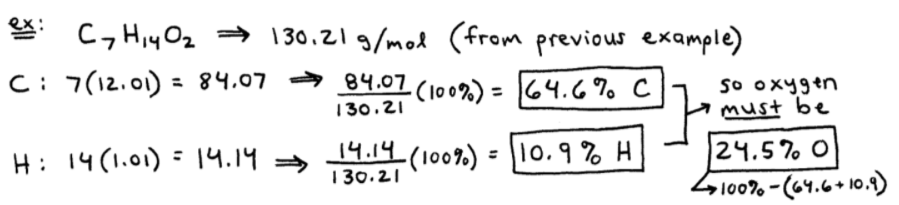 ex: C₇H₁₄O₂ ⇒ 130.21 g/mol (from previous example)
C: 7(12.01) = 84.07 ⇒ 84.07/130.21 (100%) = 64.6% C
H: 14(1.01) = 14.14 ⇒ 14.14/130.21 (100%) = 10.9% H
so oxygen
must be
24.5% O
100% - (64.6 + 10.9)